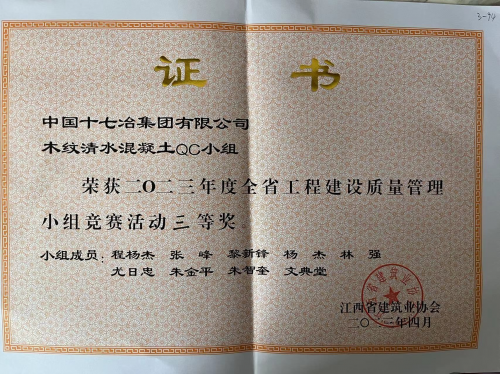 3-94
证 书
中国十七冶集团有限公司
木纹清水混凝土QC小组
荣获二〇二三年度全省工程建设质量管理
小组竞赛活动三等奖。
小组成员：程杨杰 张 峰 黎新锋 杨 杰 林 强
尤日忠 朱金平 朱智奎 文典堂
江西省建筑业协会
二〇二三年四月